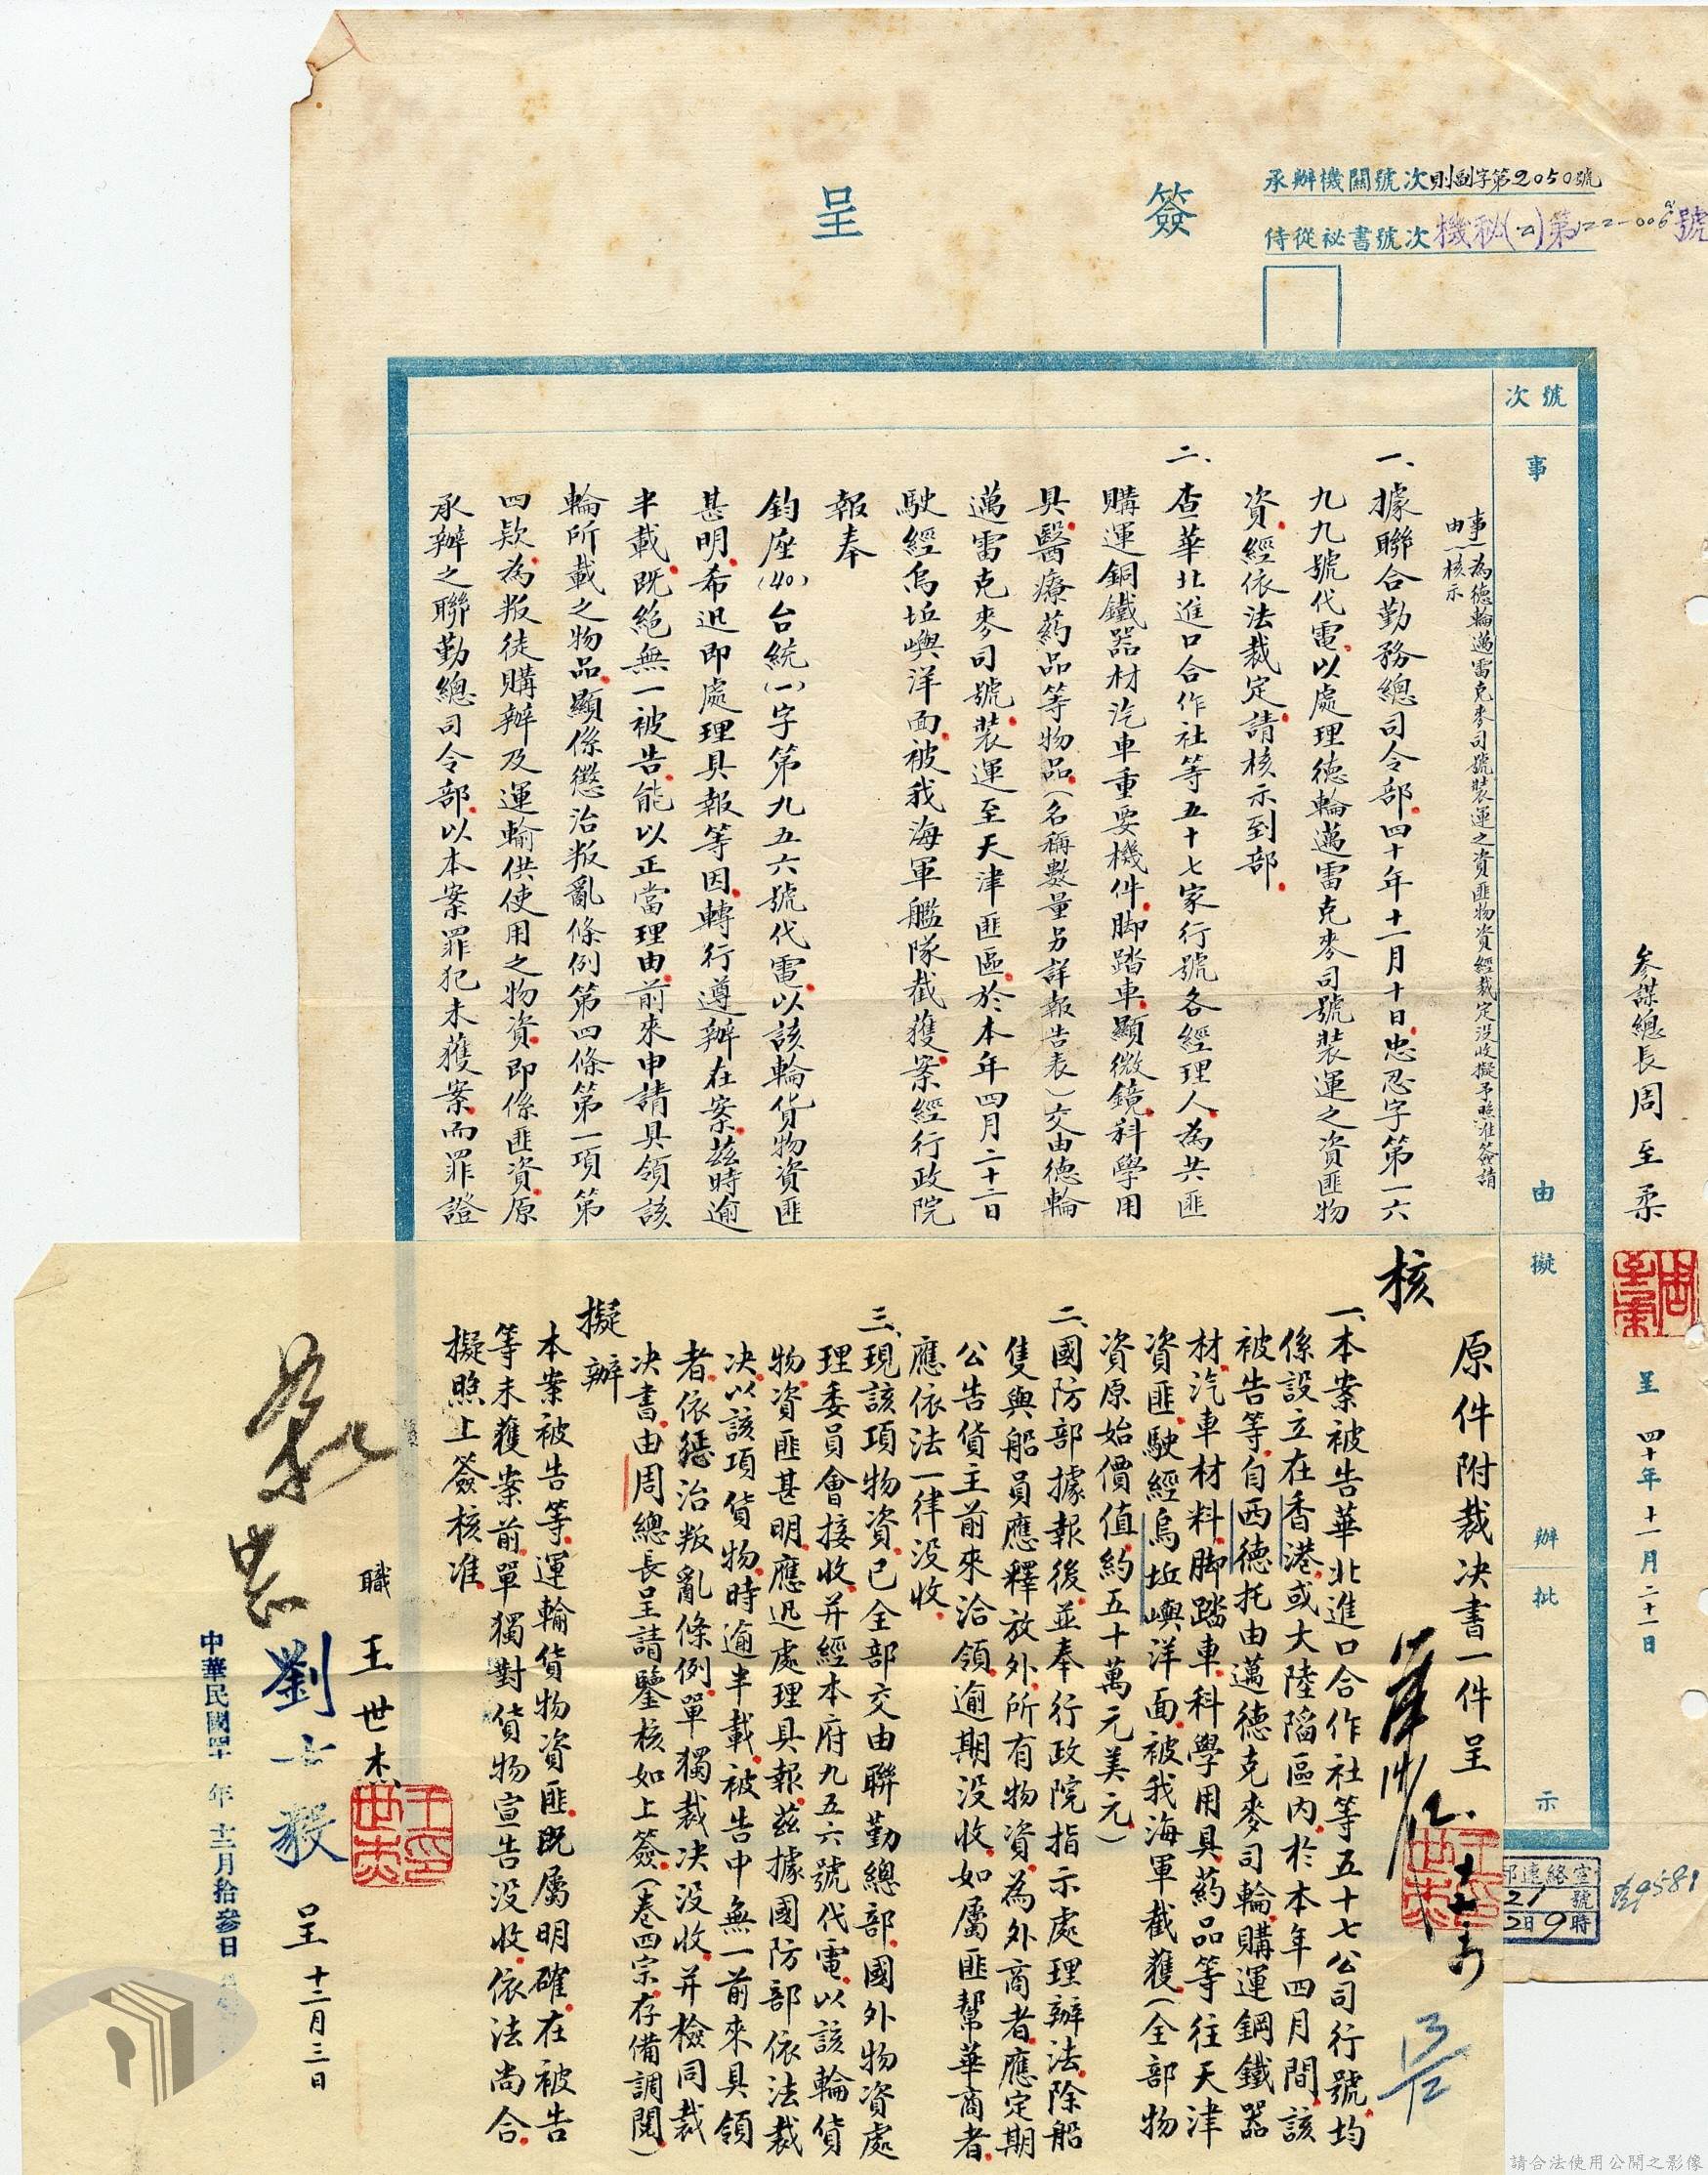 簽呈
承辦機關號次則副字第2050號
侍從祕書號次機秘(乙)第122-006號
參謀總長周至柔
呈 四十年十一月二十一日
號次
事由
擬辦
批示
事由 為德輪邁雷克麥司號裝運之資匪物資經裁定沒收擬予照准簽請
核示
一、據聯合勤務總司令部四十年十一月十日忠忍字第一六
九九號代電以處理德輪邁雷克麥司號裝運之資匪物
資經依法裁定請核示到部
二、查華北進口合作社等五十七家行號各經理人為共匪
購運銅鐵器材汽車重要機件脚踏車顯微鏡科學用
具醫療葯品等物品(名稱數量另詳報告表)交由德輪
邁雷克麥司號裝運至天津匪區於本年四月二十二日
駛經烏坵嶼洋面被我海軍艦隊截獲案經行政院
報奉
鈞座(40)台統(一)字第九五六號代電以該輪貨物資匪
甚明希迅即處理具報等因轉行遵辦在案茲時逾
半載既絕無一被告能以正當理由前來申請具領該
輪所載之物品顯係懲治叛亂條例第四條第一項第
四款為叛徒購辦及運輸供使用之物資即係匪資原
承辦之聯勤總司令部以本案罪犯未獲案而罪證
原件附裁決書一件呈
核
一、本案被告華北進口合作社等五十七公司行號均
係設立在香港或大陸陷區內於本年四月間該
被告等自西德托由邁德克麥司輪購運鋼鐵器
材汽車材料脚踏車科學用具葯品等往天津
資匪駛經烏坵嶼洋面被我海軍截獲(全部物
資原始價值約五十萬元美元)
二、國防部據報後並奉行政院指示處理辦法除船
隻與船員應釋放外所有物資為外商者應定期
公告貨主前來洽領逾期沒收如屬匪幫華商者
應依法一律沒收
三、現該項物資已全部交由聯勤總部國外物資處
理委員會接收并經本府九五六號代電以該輪貨
物資匪甚明應迅處理具報茲據國防部依法裁
決以該項貨物時逾半載被告中無一前來具領
者依懲治叛亂條例單獨裁決沒收并檢同裁
決書由周總長呈請鑒核如上簽(卷四宗存備調閱)
擬辦
本案被告等運輸貨物資匪既屬明確在被告
等未獲案前單獨對貨物宣告沒收依法尚合
擬照上簽核准
職 王世杰
劉士毅 呈 十二月三日
中華民國四十年十二月拾叁日
請合法使用公開之影像